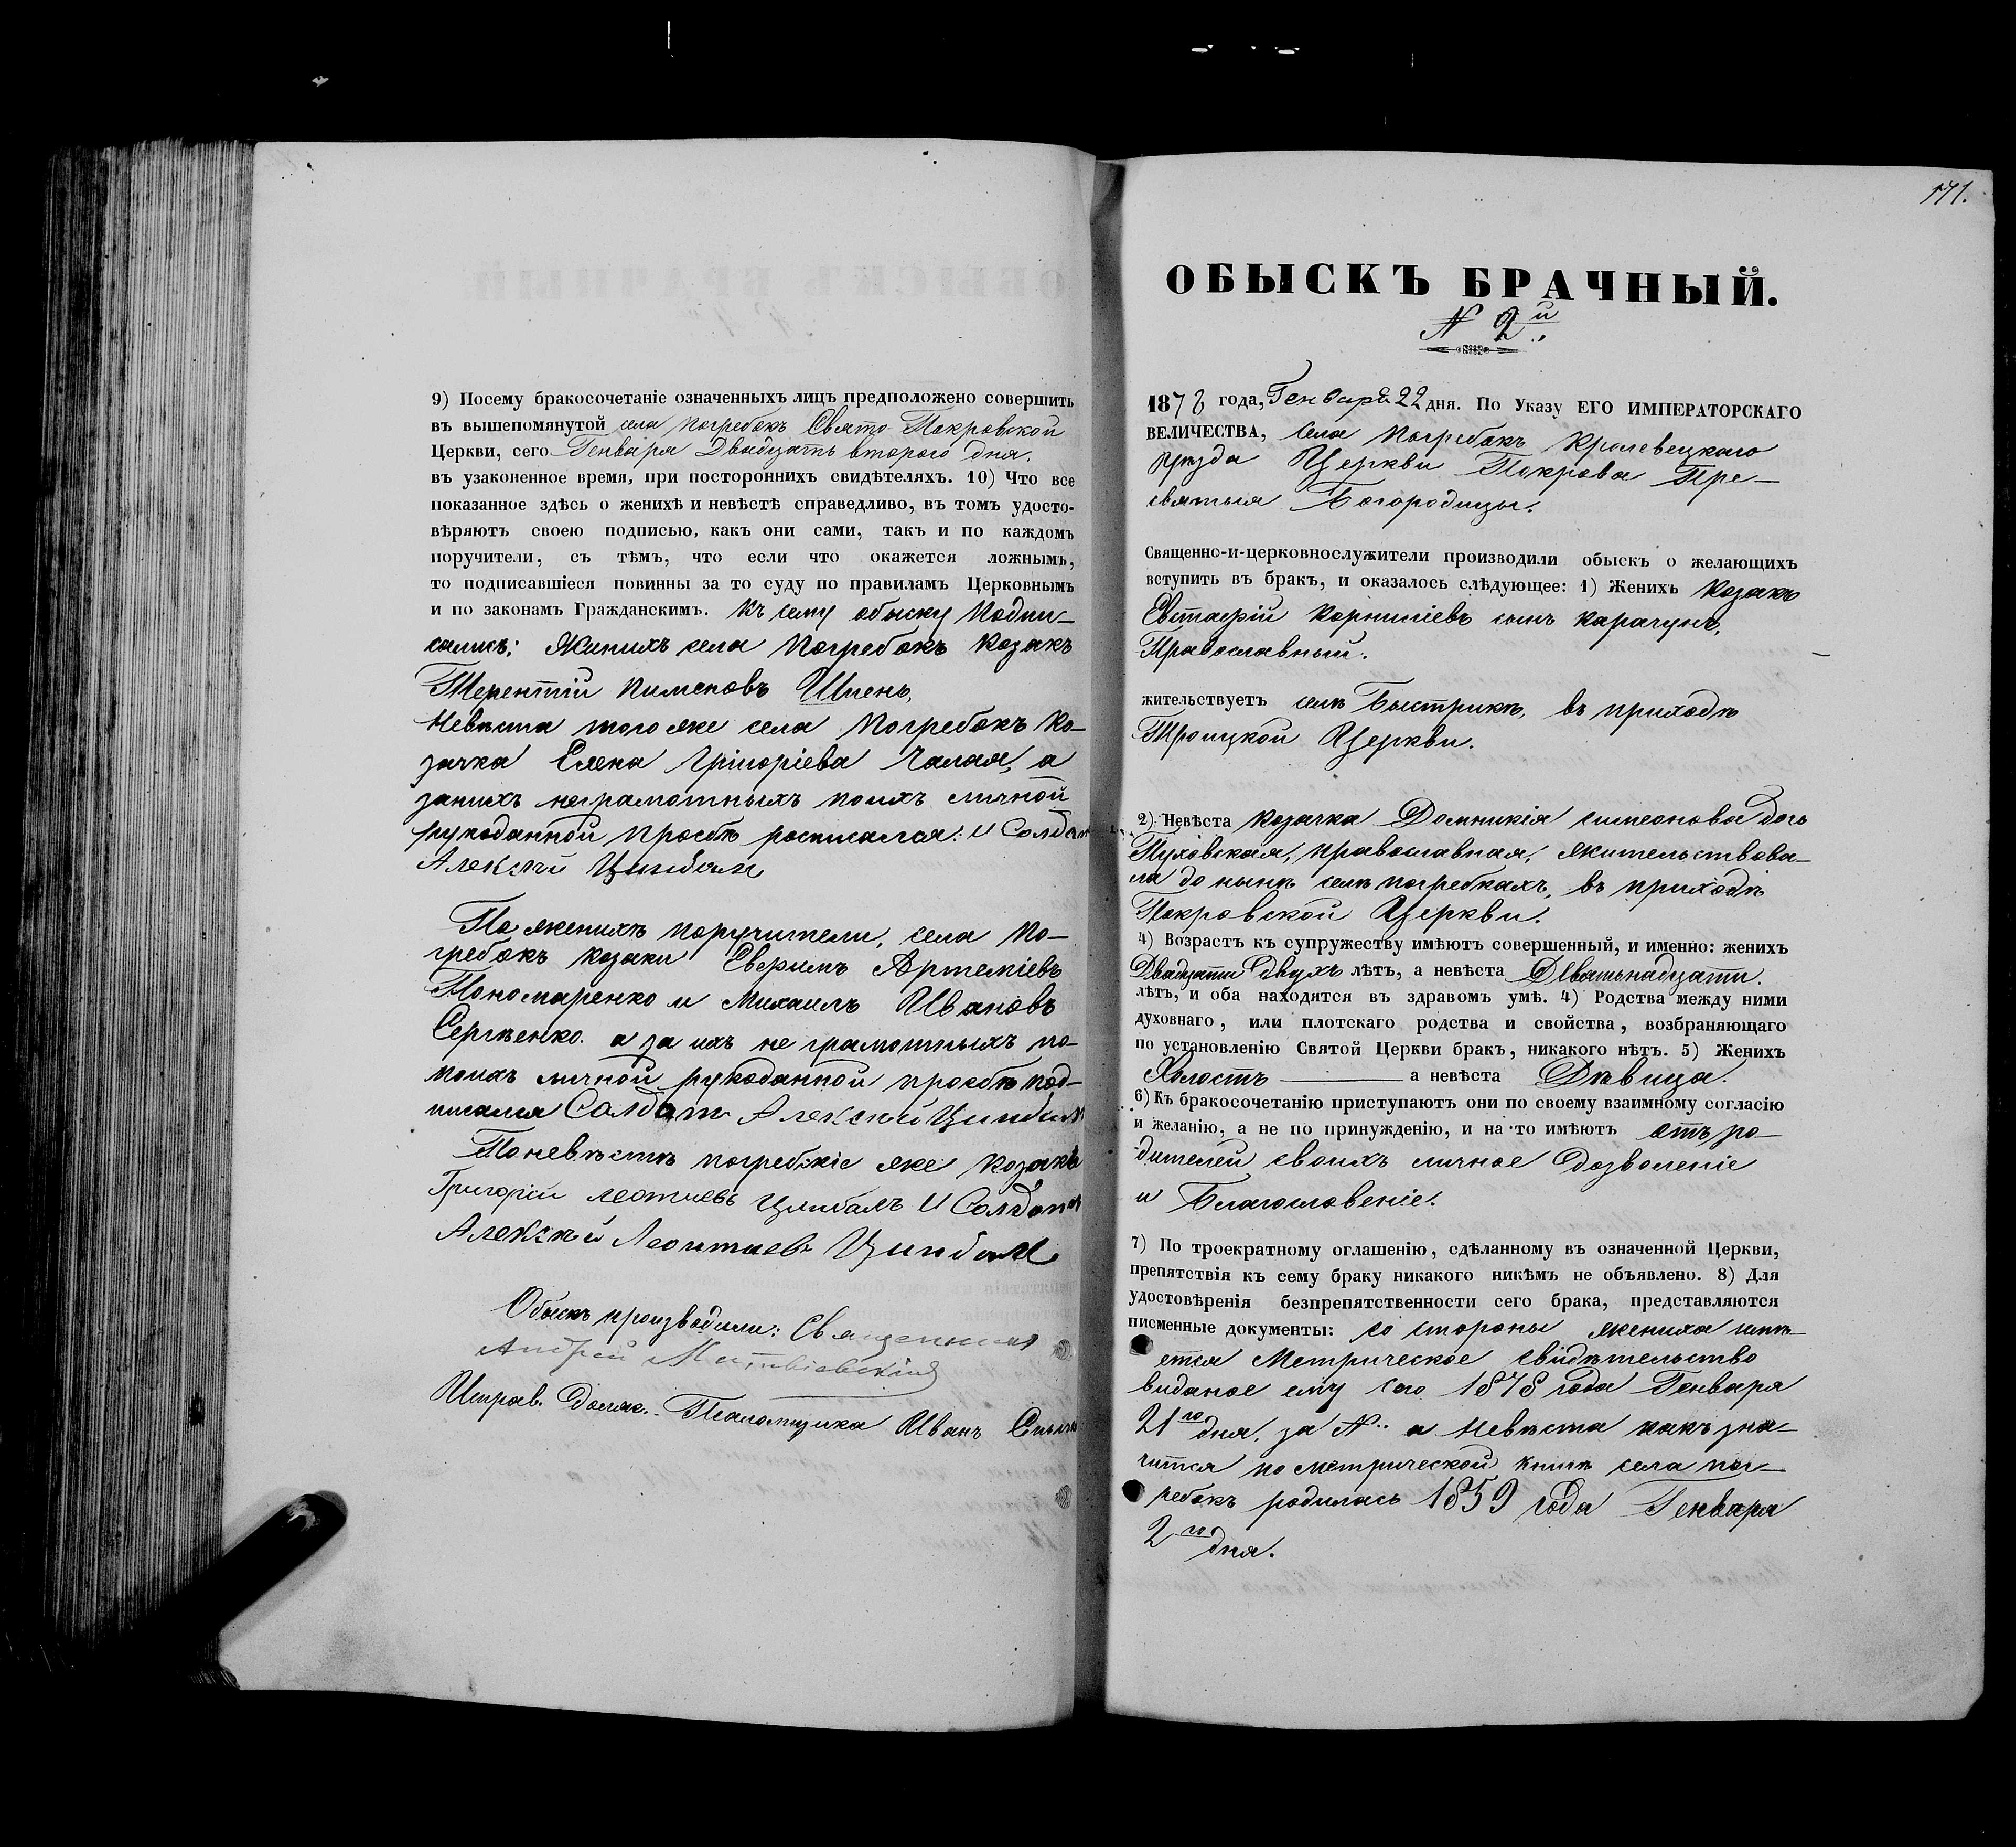 9) Посему бракосочетаніе означенныхъ лицъ предположено совершить
въ вышепомянутой села Погребокъ Свято-Покровской
Церкви, сего Генваря Двадцать второго дня.
въ узаконенное время, при постороннихъ свидѣтеляхъ. 10) Что все
показанное здѣсь о женихѣ и невѣстѣ справедливо, въ томъ удосто-
вѣряютъ своею подписью, какъ они сами, такъ и по каждомъ
поручители, съ тѣмъ, что если что окажется ложнымъ,
то подписавшіеся повинны за то суду по правиламъ Церковнымъ
и по законамъ Гражданскимъ. Къ сему обыску подпи-
сались: Женихъ села Погребокъ козакъ
Терентій Пименовъ
Невѣста того же села Погребокъ ко-
зачка Елена Григоріева Чалая, а
занихъ неграмотныхъ поихъ личной
рукоданной просьбѣ росписался: и Солдат
Алексѣй Цинбал
По женихѣ поручители, села По-
гребокъ козаки Евфимъ Артеміевъ
Пономаренко и Михаилъ Ивановъ
Сергѣенко. а за ихъ не грамотныхъ по-
поихъ личной рукоданной просьбѣ под-
писался Солдат Алексѣй Цинбал
Поневѣстѣ погребскіе же козаки
Григорій Леонтиевъ Цинбалъ и Солдат
Алексѣй Леонтиевъ Цинбал
Обыскъ производили: Священникъ
Андрей Матвіевскій
Исправ. долж. Псаломщика Иванъ
171.
ОБЫСКЪ БРАЧНЫЙ.
N 2й
1878 года, Генваря 22 дня. По Указу ЕГО ИМПЕРАТОРСКАГО
ВЕЛИЧЕСТВА, села Погребокъ Кролевецкаго
уѣзда Церкви Покрова Пре-
святыя Богородицы.
Священно-и-церковнослужители производили обыскъ о желающихъ
вступить въ бракъ, и оказалось слѣдующее: 1) Женихъ козакъ
Евстафій Корниліевъ сынъ Карачунъ,
Православный.
жительствуетъ селѣ Быстрикѣ, въ приходѣ
Троицкой Церкви.
2) Невѣста козачка Домникія симеонова дочь
Пуховская, православная, жительствова-
ла до нынѣ селѣ погребкахъ, въ приходѣ
Покровской Церкви.
4) Возрастъ къ супружеству имѣютъ совершенный, и именно: женихъ
Двадцати двухъ лѣтъ, а невѣста Девятьнадцати.
лѣтъ, и оба находятся въ здравомъ умѣ. 4) Родства между ними
духовнаго, или плотскаго родства и свойства, возбраняющаго
по установленію Святой Церкви бракъ, никакого нѣтъ. 5) Женихъ
Холостъ а невѣста Дѣвица.
6) Къ бракосочетанію приступаютъ они по своему взаимному согласію
и желанію, а не по принужденію, и на то имѣютъ отъ ро-
дителей своихъ личное дозволеніе
и Благословеніе.
7) По троекратному оглашенію, сдѣланному въ означенной Церкви,
препятствія къ сему браку никакого никѣмъ не объявлено. 8) Для
удостовѣренія безпрепятственности сего брака, представляются
писменные документы: со стороны жениха имѣ-
ется Метрическое свидѣтельство
виданое ему сего 1878 года Генваря
21го дня. за N. а невѣста какъ зна-
чится по метрической книгѣ села пог-
ребокъ родилась 1859 года Генваря
2го дня.